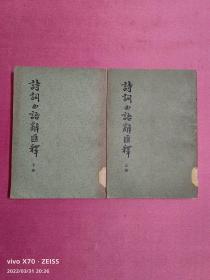 詩詞曲語辭匯釋
下冊
詩詞曲語辭匯釋
上冊
vivo X70 · ZEISS
2022/03/31 20:26